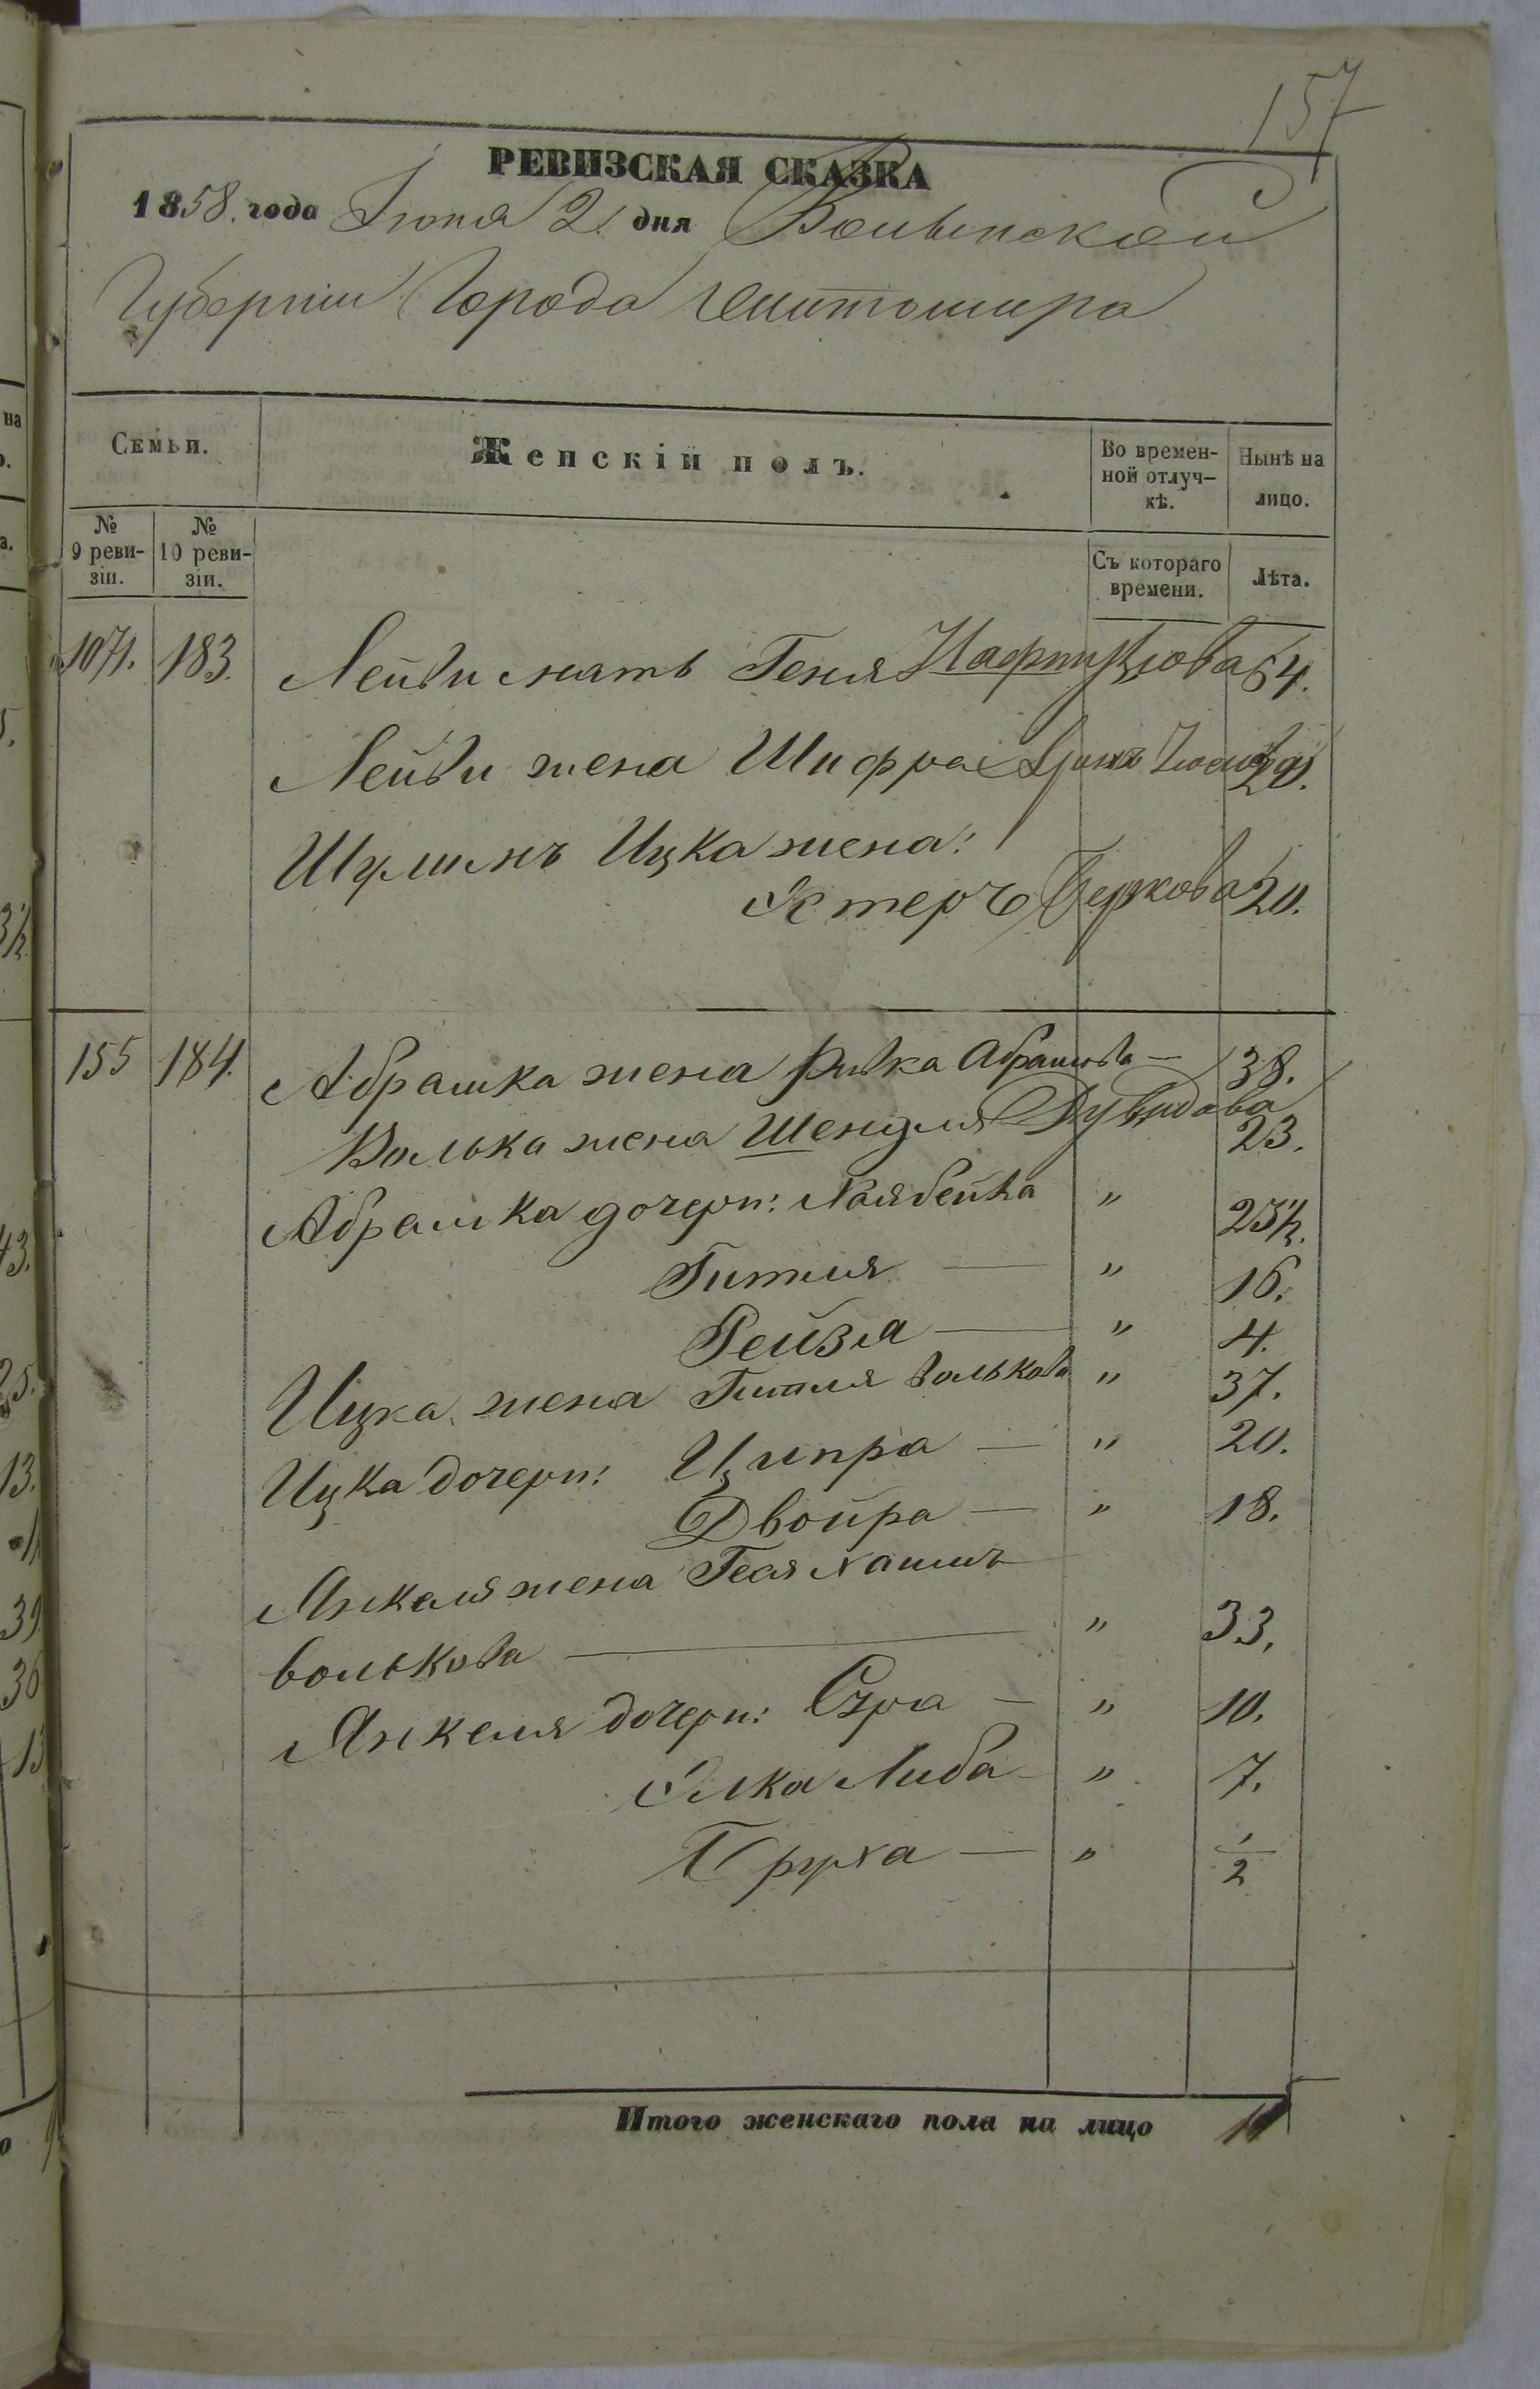 157
РЕВИЗСКАЯ СКАЗКА
1858. года Іюня 2. дня Волынской
Губерніи Города Житомира
Семьи.
Женскій полъ.
Во времен-
ной отлуч-
кѣ.
Нынѣ на
лицо.
№
9 реви-
зіи.
№
10 реви-
зіи.
Съ котораго
времени.
Лѣта.
1071. 183. Лейви мать Геня Нафтулова 64.
Лейви жена Шифра 29.
Шулимъ Ицка жена:
Эстеръ Беркова 20.
155 184. Абрашка жена Ривка Абрамова — 38.
Волька жена Шендля Дувидова
23.
Абрашка дочери: Хаябейла " 23½.
Гитля — " 16.
Рейзя — " 4.
Ицка жена Гитля Волькова " 37.
Ицка дочери: Ципра — " 20.
Двойра — " 18.
Янкеля жена Геся Хаимъ
Волькова — " 33.
Янкеля дочери: Сура — " 10.
Элка Либа — " 7.
Бруха — " 1/2
Итого женскаго пола на лицо